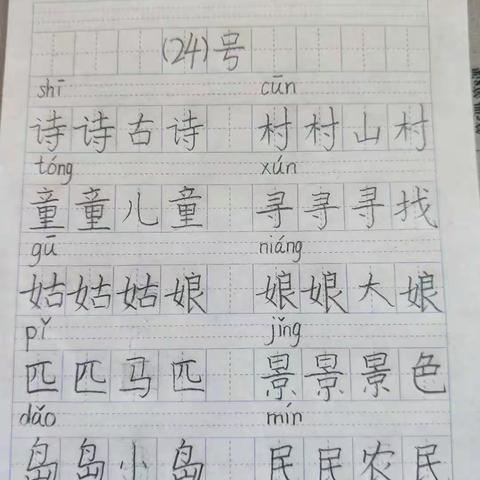 (24)号
shī cūn
诗诗古诗 村村山村
tóng xún
童童儿童 寻寻寻找
gū niáng
姑姑姑娘 娘娘大娘
pǐ jǐng
匹匹马匹 景景景色
dǎo mín
岛岛小岛 民民农民